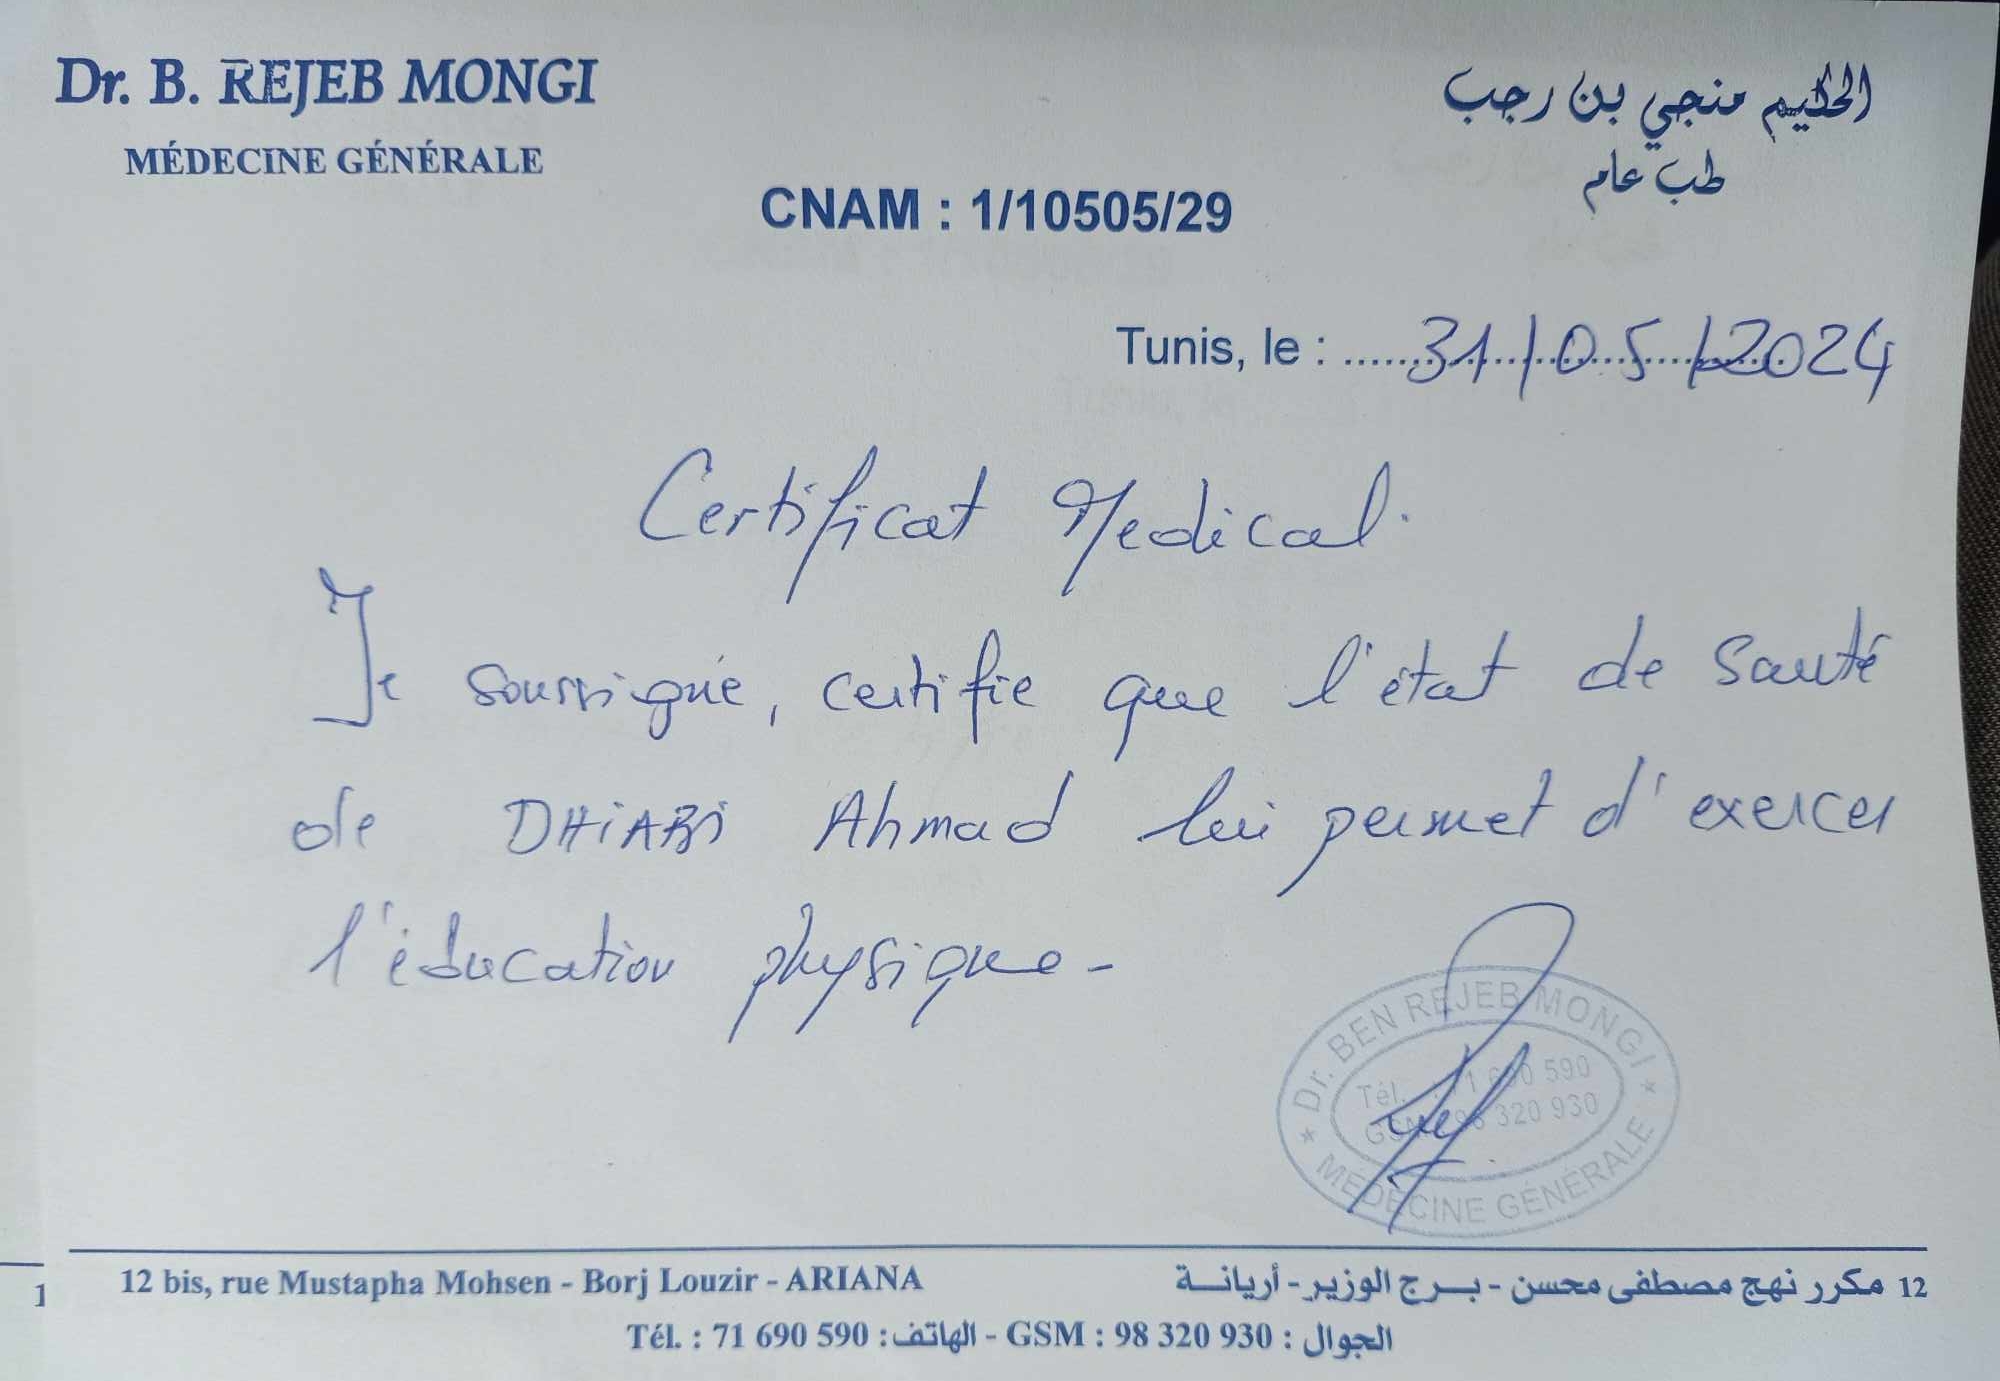 Dr. B. REJEB MONGI
MÉDECINE GÉNÉRALE
الحكيم منجي بن رجب
طب عام
CNAM : 1/10505/29
Tunis, le : 31/05/2024
Certificat Medical.
Je soussigné, certifie que l'état de santé
de DHIABI Ahmad lui permet d'exercer
l'éducation physique-
Dr. BEN REJEB MONGI
Tél. : 71 690 590
GSM : 98 320 930
* MÉDECINE GÉNÉRALE *
12 bis, rue Mustapha Mohsen - Borj Louzir - ARIANA
12 مكرر نهج مصطفى محسن - بـــرج الوزير - أريانـــة
Tél. : 71 690 590 : الهاتف - GSM : 98 320 930 : الجوال
1